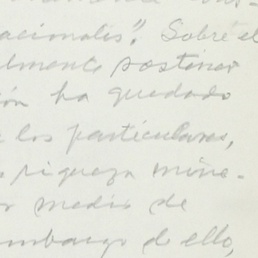 acionales". Sobre el
lmente sostener
ón ha quedado
los particulares,
riqueza mine-
medio de
embargo de ello,